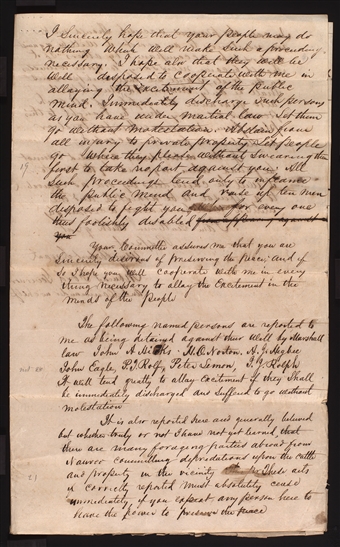 I Sincerely hope that your people may do
nothing which will make such a proceeding
necessary. I hope also that they will be
well disposed to cooperate with me in
allaying the excitement of the public
mind. Immediately discharge such persons
as you have under martial law. Let them
go without molestation. Abstain from
all injury to private property. Let people
go where they please without swearing them
first to take no part against you. All
such proceedings tend only to inflame
the public mind and raise up ten men
disposed to fight you for every one
thus foolishly disabled
you
Your Committee assures me that you are
Sincerely desirous of preserving the peace and if
so I hope you will cooperate with me in every
thing necessary to allay the Excitement in the
minds of the people
The following named persons are reported to
me as being detained against their will by Marshall
law John A Hicks H. O. Norton, A. J. Higbee
John Eagle, P. J. Rolf, Peter Lemon, S. J. Rolph
It will tend greatly to allay excitement if they shall
be immediately discharged and suffered to go without
molestation
It is also reported here and generally believed
but whether truly or not I have not yet learned, that
there are many foraging parties abroad from
Nauvoo committing depredations upon the cattle
and property in the vicinity These acts
if correctly reported must absolutely cease
immediately if you expect any person here to
have the power to preserve the peace